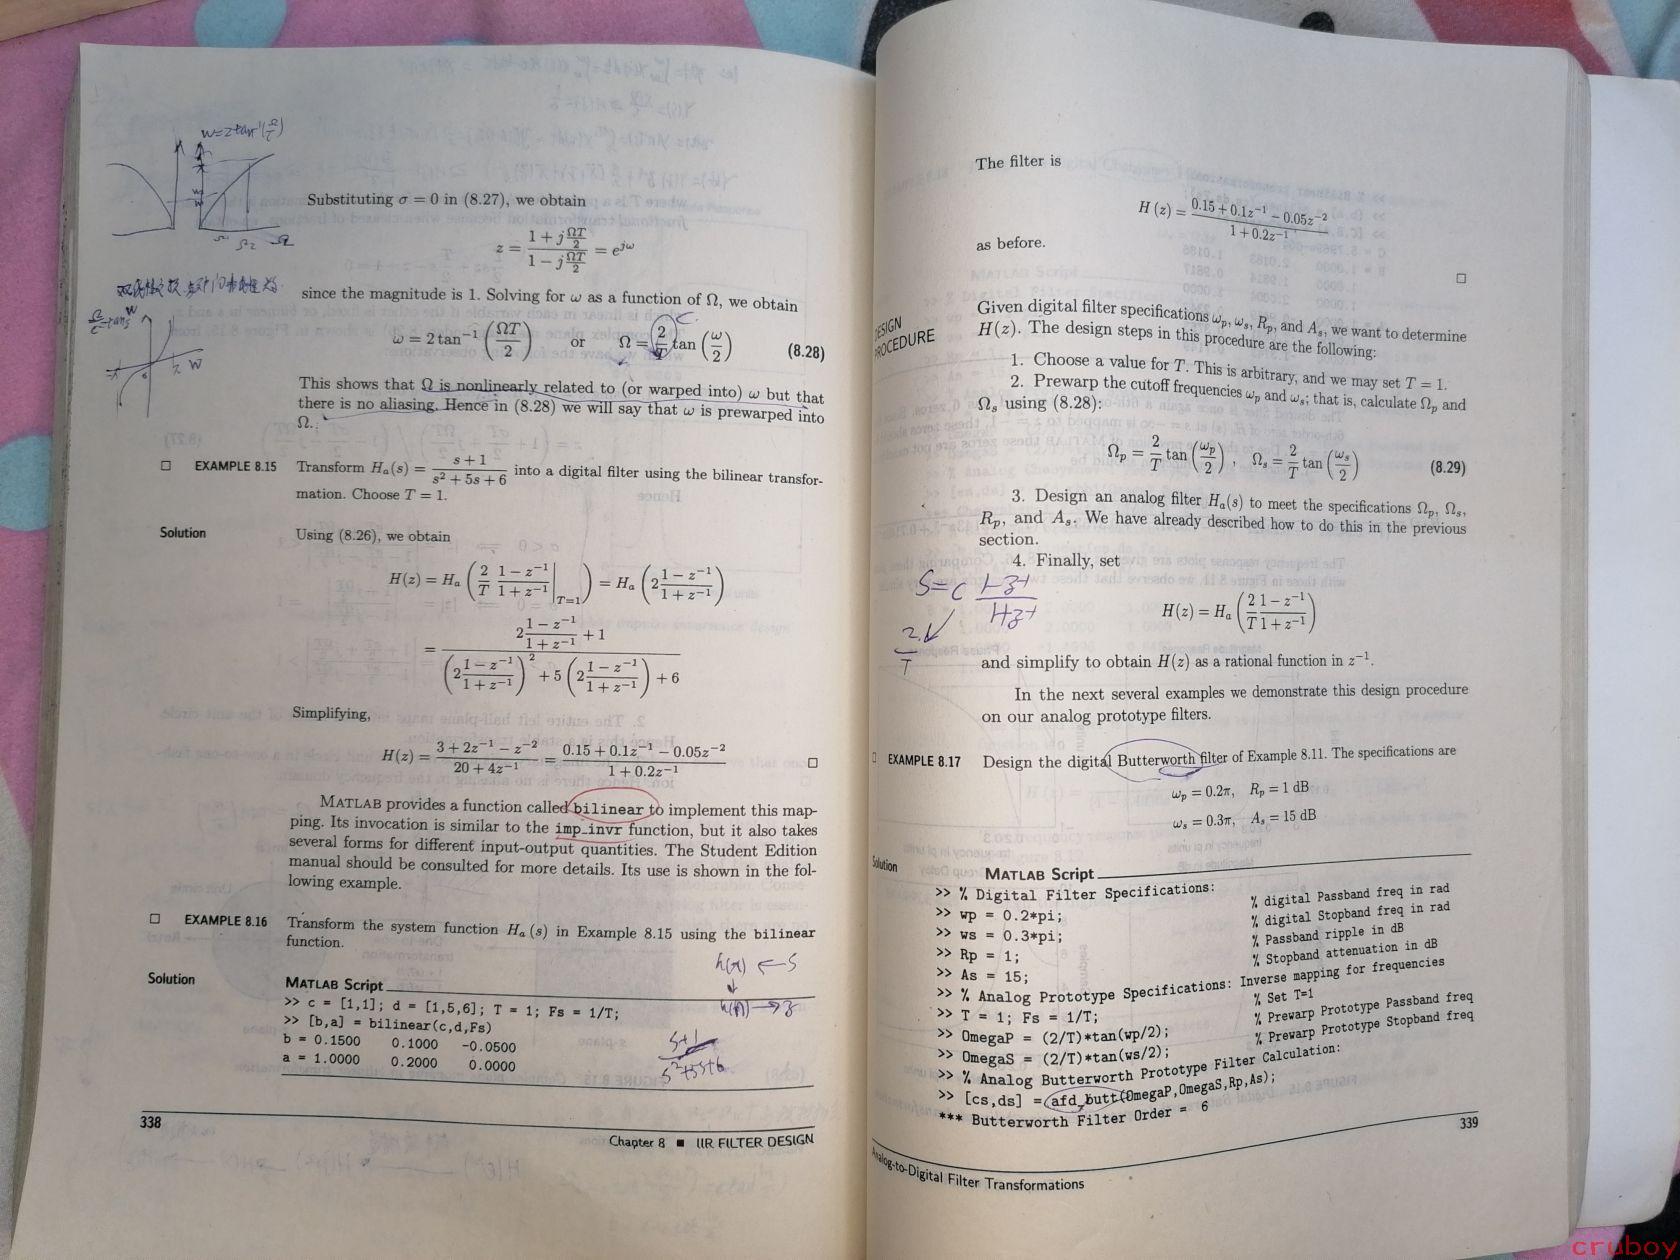 Substituting σ = 0 in (8.27), we obtain
z = (1 + j ΩT/2) / (1 − j ΩT/2) = e^{jω}
since the magnitude is 1. Solving for ω as a function of Ω, we obtain
ω = 2 tan⁻¹ (ΩT/2) or Ω = (2/T) tan (ω/2) (8.28)
This shows that Ω is nonlinearly related to (or warped into) ω but that
there is no aliasing. Hence in (8.28) we will say that ω is prewarped into
Ω.
□ EXAMPLE 8.15 Transform Hₐ(s) = (s + 1) / (s² + 5s + 6) into a digital filter using the bilinear transfor-
mation. Choose T = 1.
Solution Using (8.26), we obtain
H(z) = Hₐ ( (2/T) (1 − z⁻¹)/(1 + z⁻¹) |_{T=1} ) = Hₐ ( 2 (1 − z⁻¹)/(1 + z⁻¹) )
= ( 2 (1 − z⁻¹)/(1 + z⁻¹) + 1 ) / ( ( 2 (1 − z⁻¹)/(1 + z⁻¹) )² + 5 ( 2 (1 − z⁻¹)/(1 + z⁻¹) ) + 6 )
Simplifying,
H(z) = (3 + 2z⁻¹ − z⁻²) / (20 + 4z⁻¹) = (0.15 + 0.1z⁻¹ − 0.05z⁻²) / (1 + 0.2z⁻¹) □
MATLAB provides a function called bilinear to implement this map-
ping. Its invocation is similar to the imp_invr function, but it also takes
several forms for different input-output quantities. The Student Edition
manual should be consulted for more details. Its use is shown in the fol-
lowing example.
□ EXAMPLE 8.16 Transform the system function Hₐ (s) in Example 8.15 using the bilinear
function.
Solution MATLAB Script
>> c = [1,1]; d = [1,5,6]; T = 1; Fs = 1/T;
>> [b,a] = bilinear(c,d,Fs)
b = 0.1500 0.1000 -0.0500
a = 1.0000 0.2000 0.0000
338
Chapter 8 ■ IIR FILTER DESIGN
W=2tan⁻¹(Ω/c)
Ω₁ Ω₂ Ω
W
c
h(n) → z
s+1
s²+5s+6
The filter is
H (z) = (0.15 + 0.1z⁻¹ − 0.05z⁻²) / (1 + 0.2z⁻¹)
as before.
□
DESIGN
PROCEDURE
Given digital filter specifications ωp, ωs, Rp, and As, we want to determine
H(z). The design steps in this procedure are the following:
1. Choose a value for T. This is arbitrary, and we may set T = 1.
2. Prewarp the cutoff frequencies ωp and ωs; that is, calculate Ωp and
Ωs using (8.28):
Ωp = (2/T) tan (ωp/2) , Ωs = (2/T) tan (ωs/2) (8.29)
3. Design an analog filter Hₐ(s) to meet the specifications Ωp, Ωs,
Rp, and As. We have already described how to do this in the previous
section.
4. Finally, set
H(z) = Hₐ ( (2/T) (1 − z⁻¹)/(1 + z⁻¹) )
S=c (1-z⁻¹)/(1+z⁻¹)
2/T
and simplify to obtain H(z) as a rational function in z⁻¹.
In the next several examples we demonstrate this design procedure
on our analog prototype filters.
□ EXAMPLE 8.17 Design the digital Butterworth filter of Example 8.11. The specifications are
ωp = 0.2π, Rp = 1 dB
ωs = 0.3π, As = 15 dB
Solution MATLAB Script
>> % Digital Filter Specifications:
>> wp = 0.2*pi; % digital Passband freq in rad
>> ws = 0.3*pi; % digital Stopband freq in rad
>> Rp = 1; % Passband ripple in dB
>> As = 15; % Stopband attenuation in dB
>> % Analog Prototype Specifications: Inverse mapping for frequencies
>> T = 1; Fs = 1/T; % Set T=1
>> OmegaP = (2/T)*tan(wp/2); % Prewarp Prototype Passband freq
>> OmegaS = (2/T)*tan(ws/2); % Prewarp Prototype Stopband freq
>> % Analog Butterworth Prototype Filter Calculation:
>> [cs,ds] = afd_butt(OmegaP,OmegaS,Rp,As);
*** Butterworth Filter Order = 6
339
Analog-to-Digital Filter Transformations
cruboy